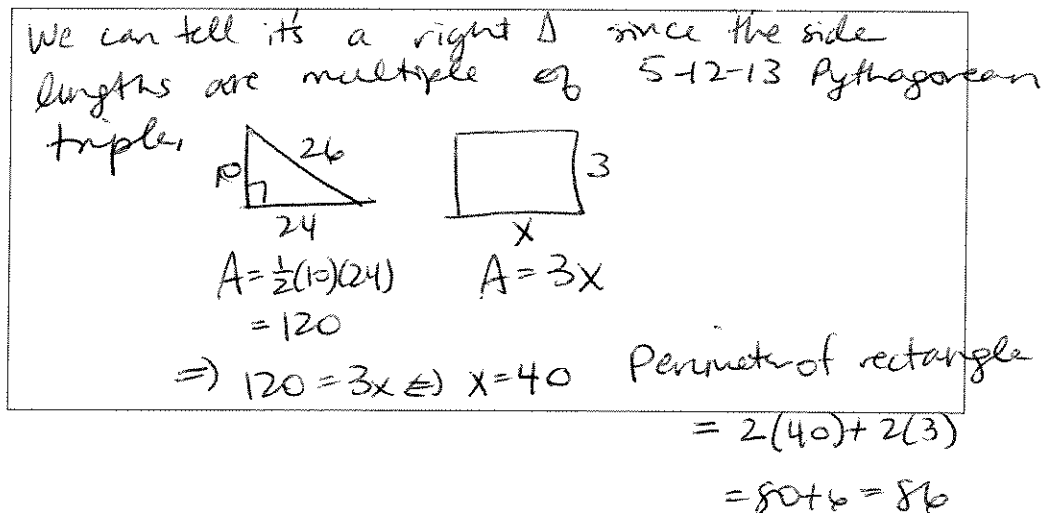 We can tell it's a right Δ since the side
lengths are multiple of 5-12-13 Pythagorean
triple.
10
26
24
3
x
A = ½(10)(24)
= 120
A = 3x
⇒ 120 = 3x ⇔ x = 40
Perimeter of rectangle
= 2(40) + 2(3)
= 80 + 6 = 86